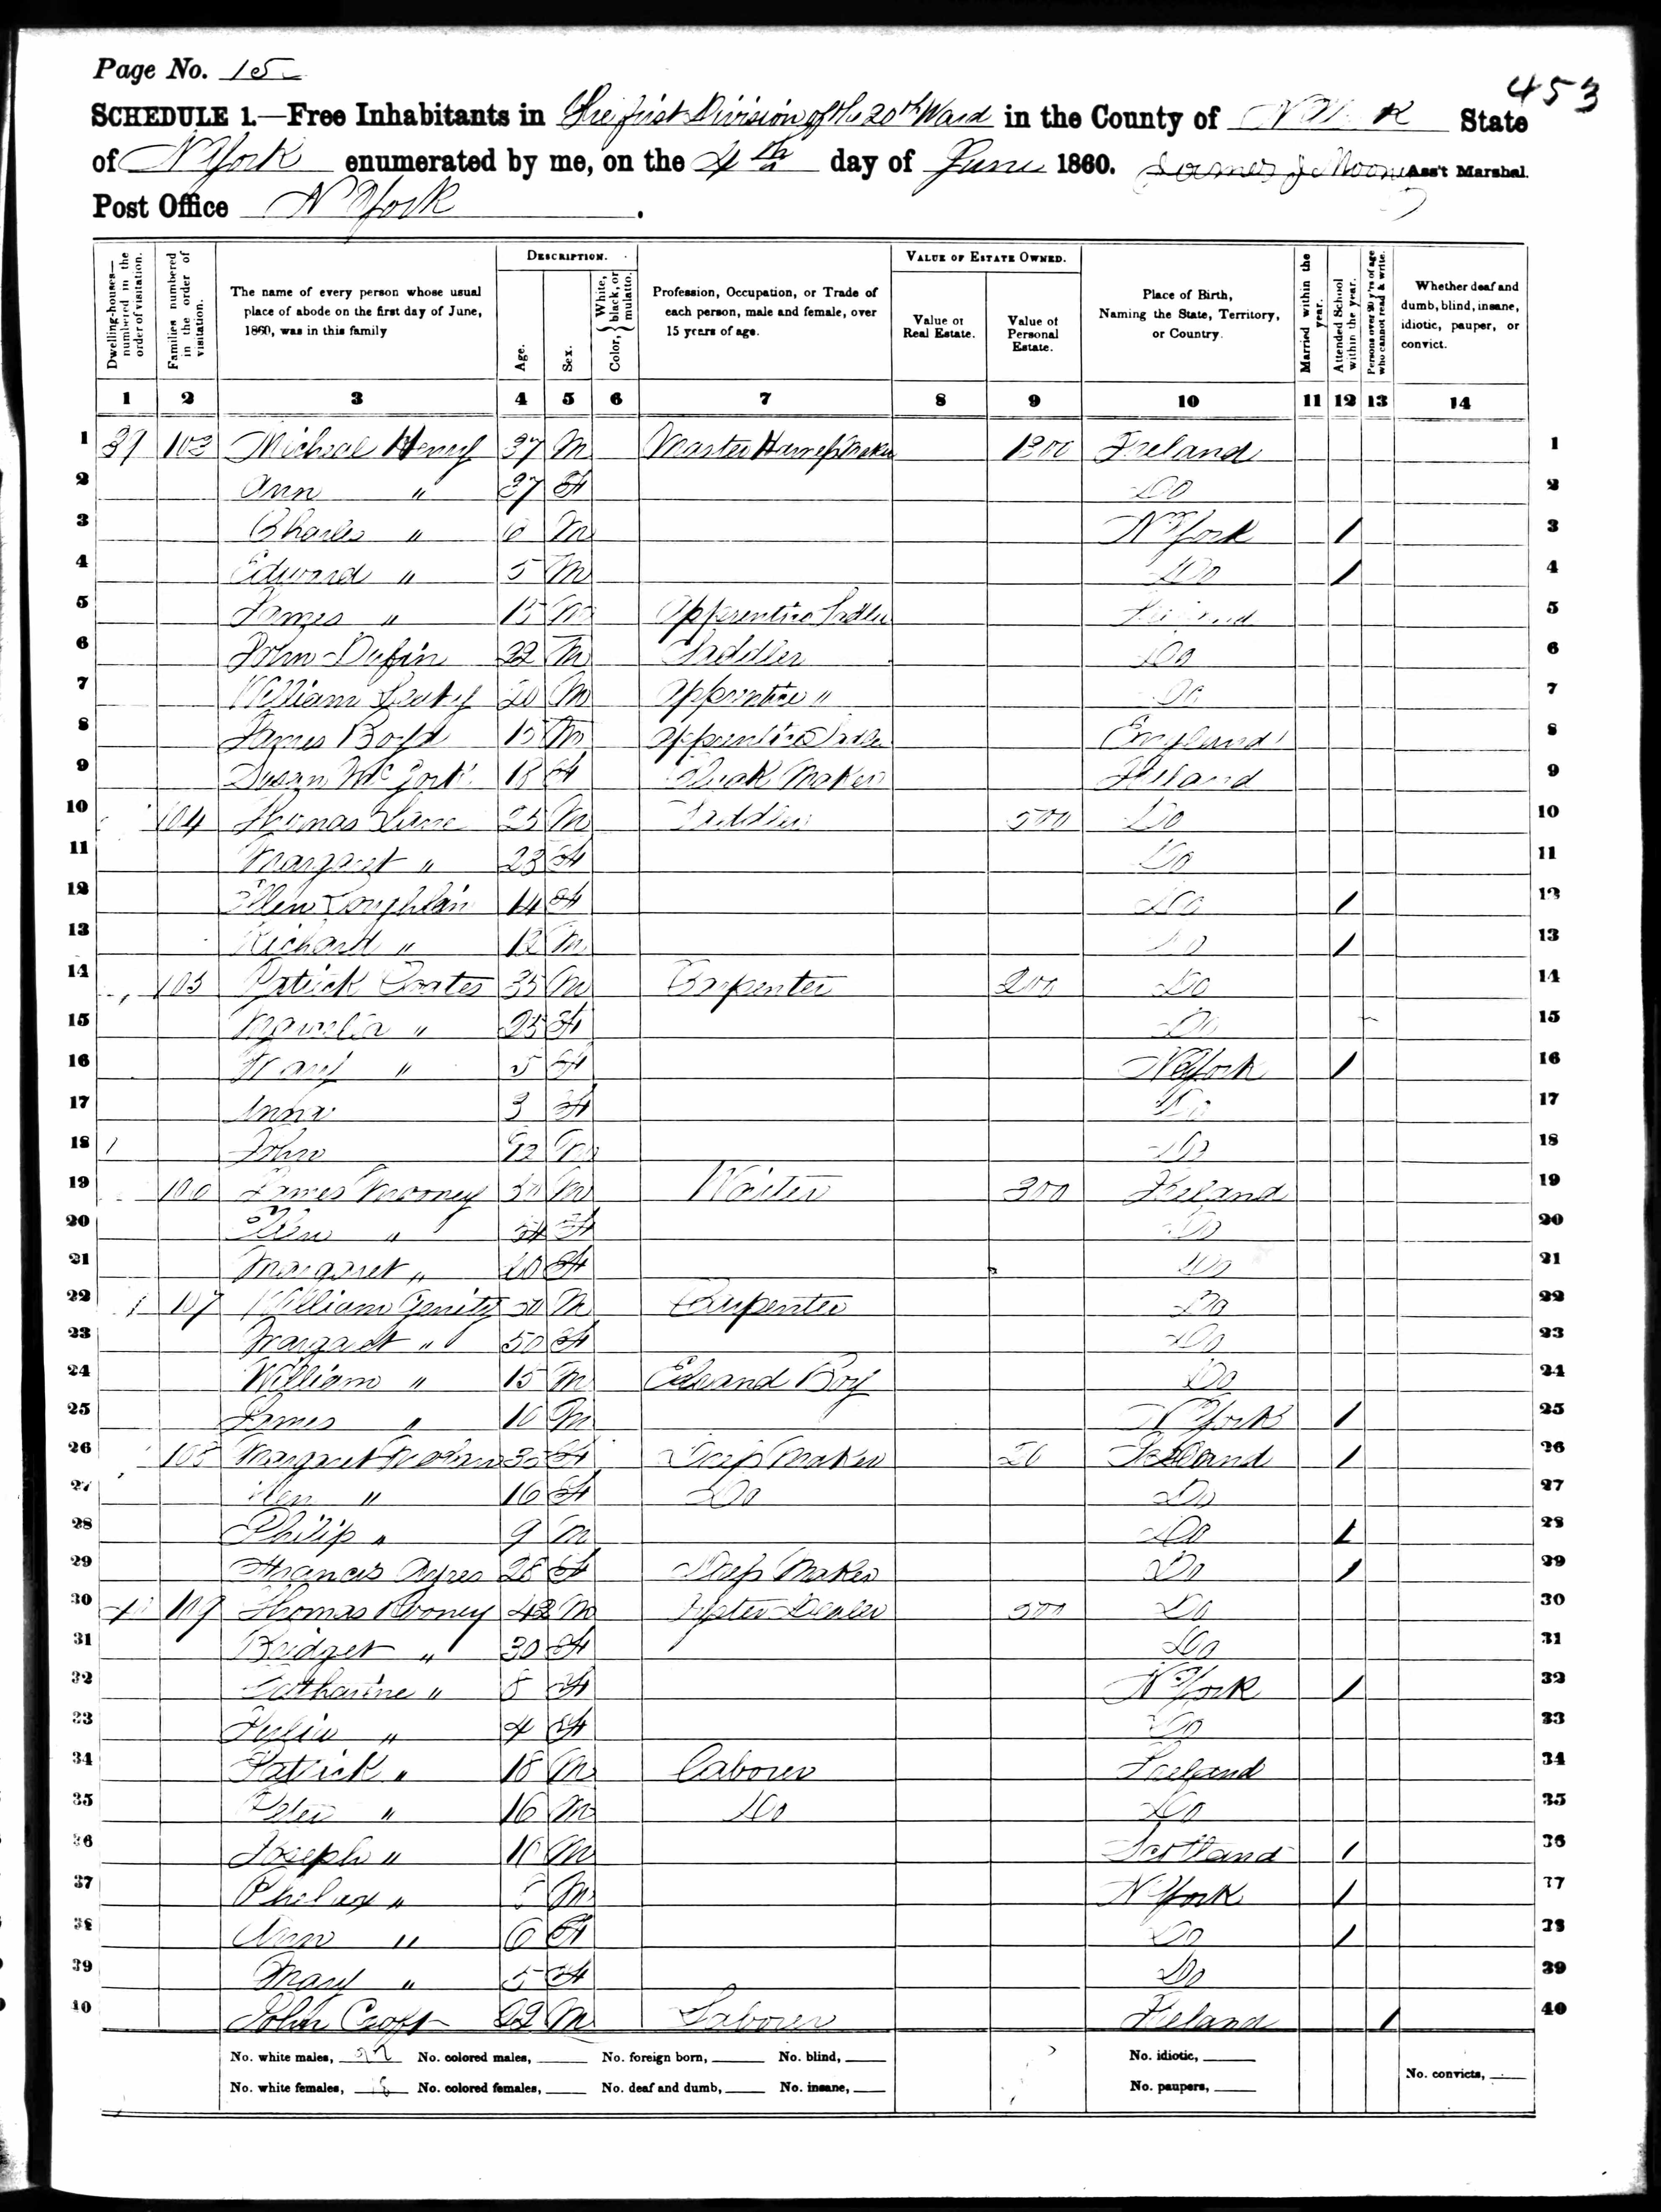 Page No. 15
453
SCHEDULE 1.—Free Inhabitants in the first Division of the 20th Ward in the County of N York State
of N York enumerated by me, on the 4th day of June 1860. James J Mooney Ass't Marshal.
Post Office N York.
Dwelling-houses—numbered in the order of visitation.
Families numbered in the order of visitation.
The name of every person whose usual place of abode on the first day of June, 1860, was in this family
DESCRIPTION.
Age.
Sex.
Color, { White, black, or mulatto.
Profession, Occupation, or Trade of each person, male and female, over 15 years of age.
VALUE OF ESTATE OWNED.
Value of Real Estate.
Value of Personal Estate.
Place of Birth, Naming the State, Territory, or Country.
Married within the year.
Attended School within the year.
Persons over 20 y'rs of age who cannot read & write.
Whether deaf and dumb, blind, insane, idiotic, pauper, or convict.
1 2 3 4 5 6 7 8 9 10 11 12 13 14
1 39 103 Michael Henry 37 M Master Harness Maker 1200 Ireland 1
2 Ann " 37 F Do 2
3 Charles " 6 M N York / 3
4 Edward " 5 M Do / 4
5 James " 15 M Apprentice Sadler Ireland 5
6 John Dufin 22 M Saddler Do 6
7 William 20 M Apprentice " Do 7
8 James Boyd 15 M Apprentice Sadler England 8
9 Susan 18 F Cloak Maker Ireland 9
10 104 Thomas Lane 25 M Saddler 500 Do 10
11 Margaret " 23 F Do 11
12 Ellen Loughlin 14 F Do / 12
13 Richard " 12 M Do / 13
14 105 Patrick Coates 35 M Carpenter 200 Do 14
15 " 25 F Do 15
16 Mary " 5 F N York / 16
17 Anna 3 F Do 17
18 John M Do 18
19 106 James Mooney 30 M Waiter 300 Ireland 19
20 Ellen " F Do 20
21 Margaret " 60 F Do 21
22 107 William 50 M Carpenter Do 22
23 Margaret " 50 F Do 23
24 William " 15 M Errand Boy Do 24
25 James " 10 M N York / 25
26 108 Margaret F Dress Maker 20 Ireland / 26
27 Ellen " 16 F Do Do 27
28 Philip " 9 M Do / 28
29 Frances Ayres 28 F Dress Maker Do / 29
30 40 109 Thomas Rooney 42 M Oyster Dealer 500 Do 30
31 Bridget " 30 F Do 31
32 Catharine " 8 F N York / 32
33 Julia " 4 F Do 33
34 Patrick " 18 M Laborer Ireland 34
35 Peter " 16 M Do Do 35
36 Joseph " 10 M Scotland / 36
37 " M N York / 37
38 Ann " 6 F Do / 38
39 Mary " 5 F Do 39
40 John Croft 22 M Laborer Ireland / 40
No. white males, 22 No. colored males, No. foreign born, No. blind, No. idiotic,
No. white females, 18 No. colored females, No. deaf and dumb, No. insane, No. paupers, No. convicts,